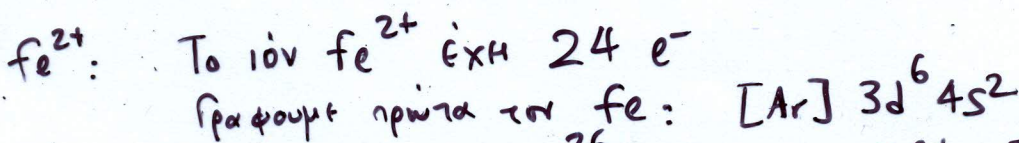 Fe²⁺: Το ιόν Fe²⁺ έχει 24 e⁻
Γράφουμε πρώτα τον Fe: [Ar] 3d⁶ 4s²